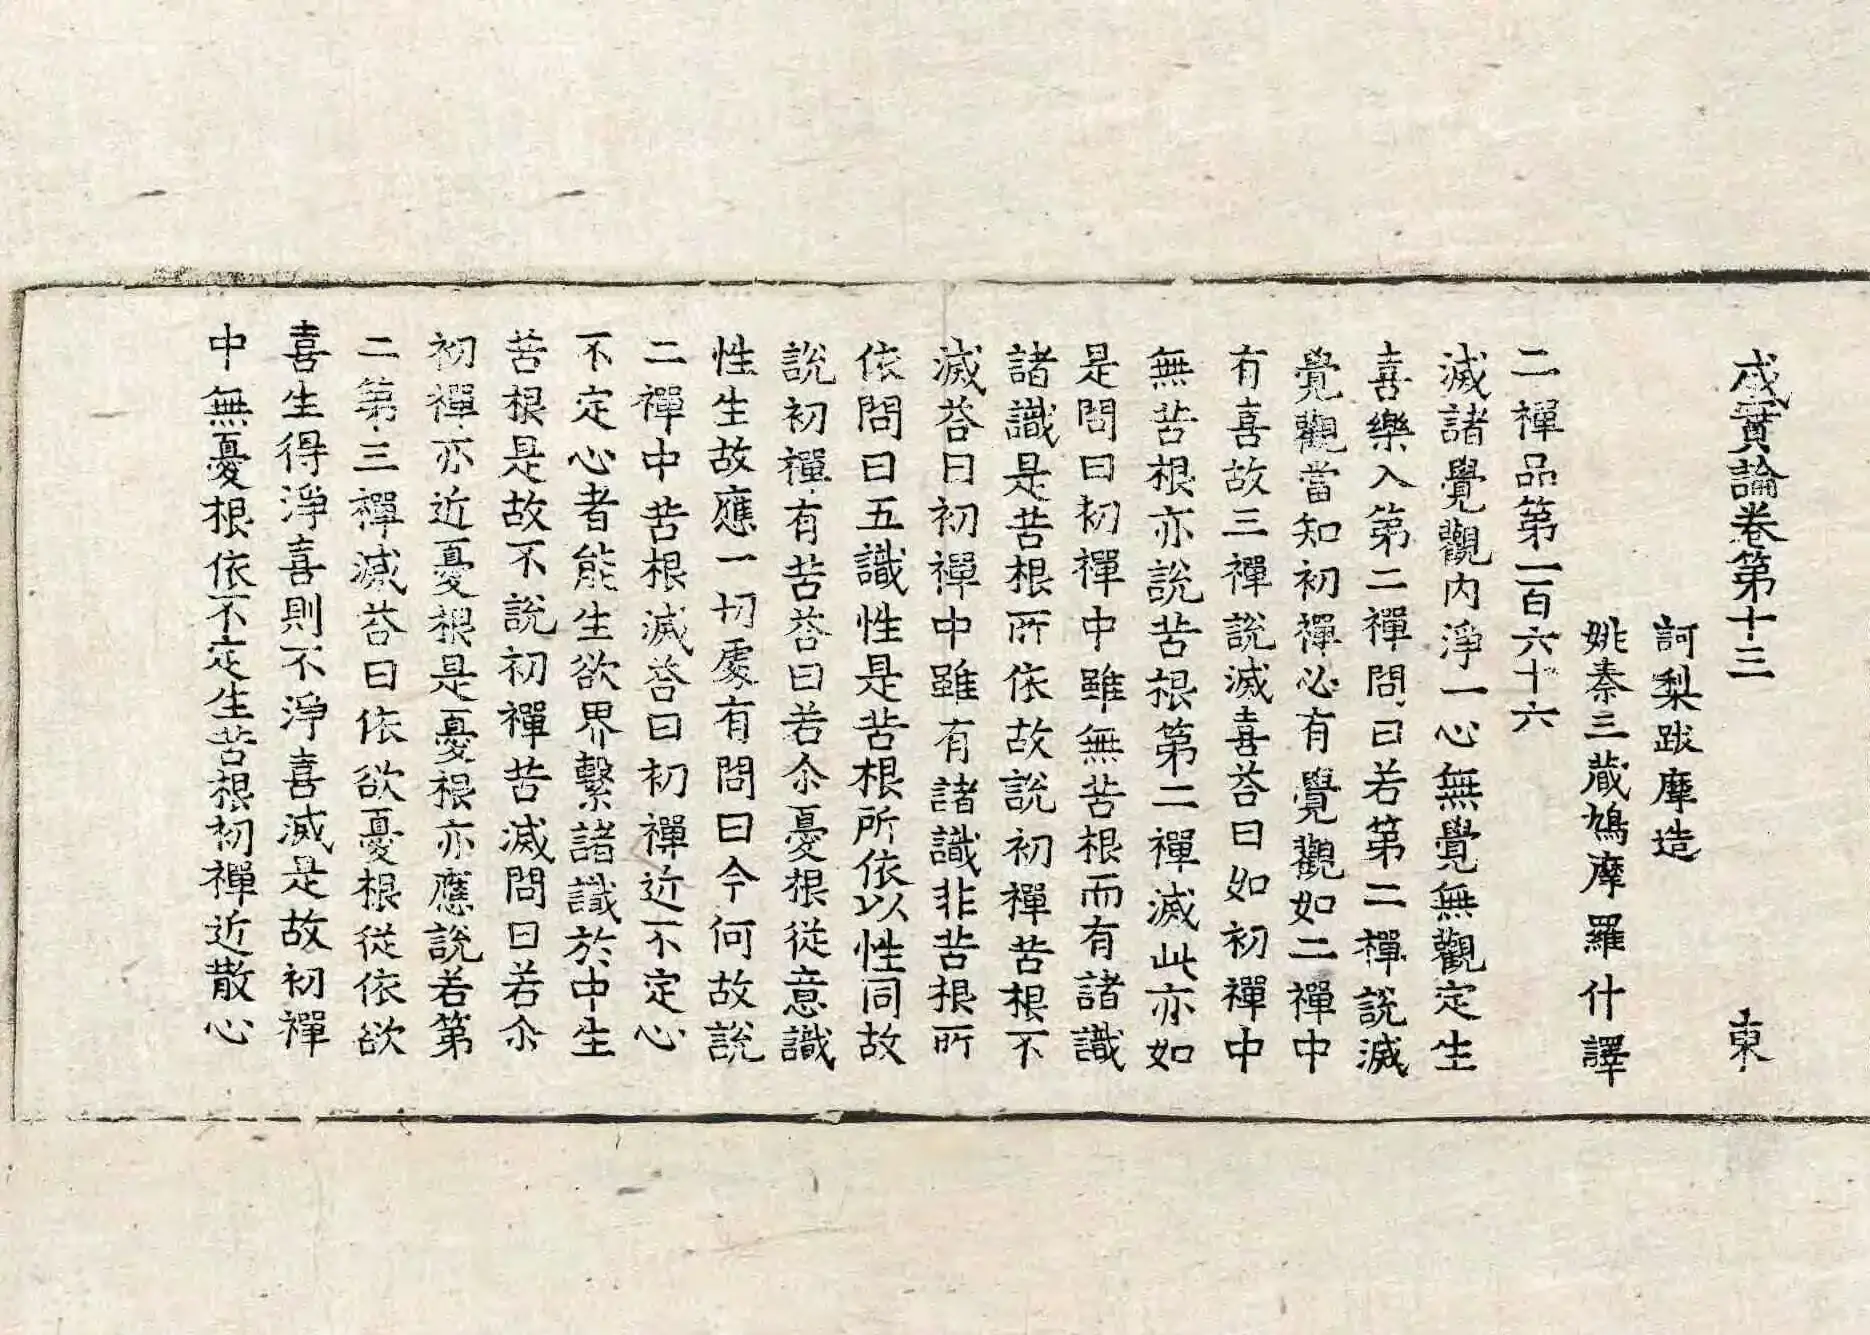 成實論卷第十三 東
訶梨跋摩造
姚秦三藏鳩摩羅什譯
二禪品第一百六十六
滅諸覺觀內淨一心無覺無觀定生
喜樂入第二禪問曰若第二禪說滅
覺觀當知初禪必有覺觀如二禪中
有喜故三禪說滅喜荅曰如初禪中
無苦根亦說苦根第二禪滅此亦如
是問曰初禪中雖無苦根而有諸識
諸識是苦根所依故說初禪苦根不
滅荅曰初禪中雖有諸識非苦根所
依問曰五識性是苦根所依以性同故
說初禪有苦荅曰若尒憂根從意識
性生故應一切處有問曰今何故說
二禪中苦根滅荅曰初禪近不定心
不定心者能生欲界繫諸識於中生
苦根是故不說初禪苦滅問曰若尒
初禪亦近憂根是憂根亦應說若第
二第三禪滅荅曰依欲憂根從依欲
喜生得淨喜則不淨喜滅是故初禪
中無憂根依不定生苦根初禪近散心